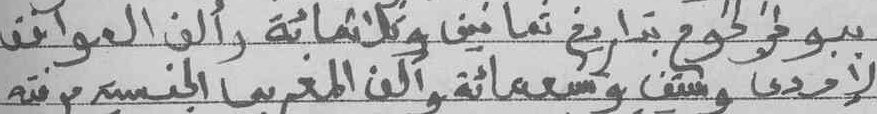 ببو فرلحوح بتاريخ ثمانين وثلاثمائة وألف الموافق
لإحدى وستين وتسعمائة وألف المغربي الجنسية مهنته